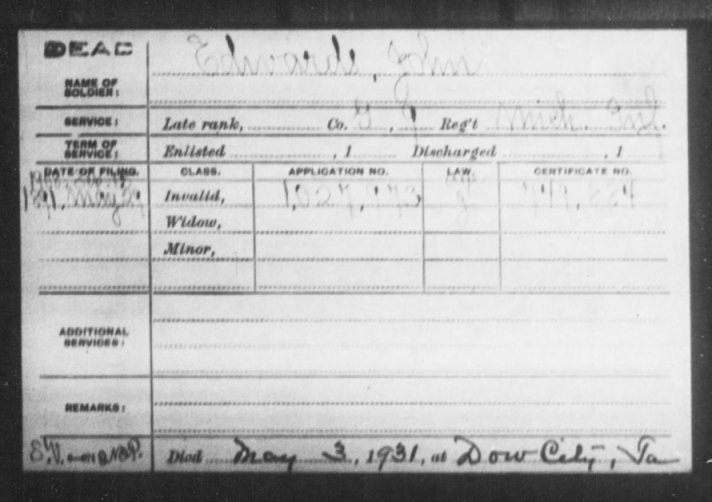 DEAD
NAME OF SOLDIER: Edwards, John
SERVICE: Late rank, Co. G, 9 Reg't Mich. Cav.
TERM OF SERVICE: Enlisted , 1 Discharged , 1
DATE OF FILING. CLASS. APPLICATION NO. LAW. CERTIFICATE NO.
1891. May Invalid, 1,027,173
Widow,
Minor,
ADDITIONAL SERVICES:
REMARKS:
Died May 3, 1931, at Dow City, Ia